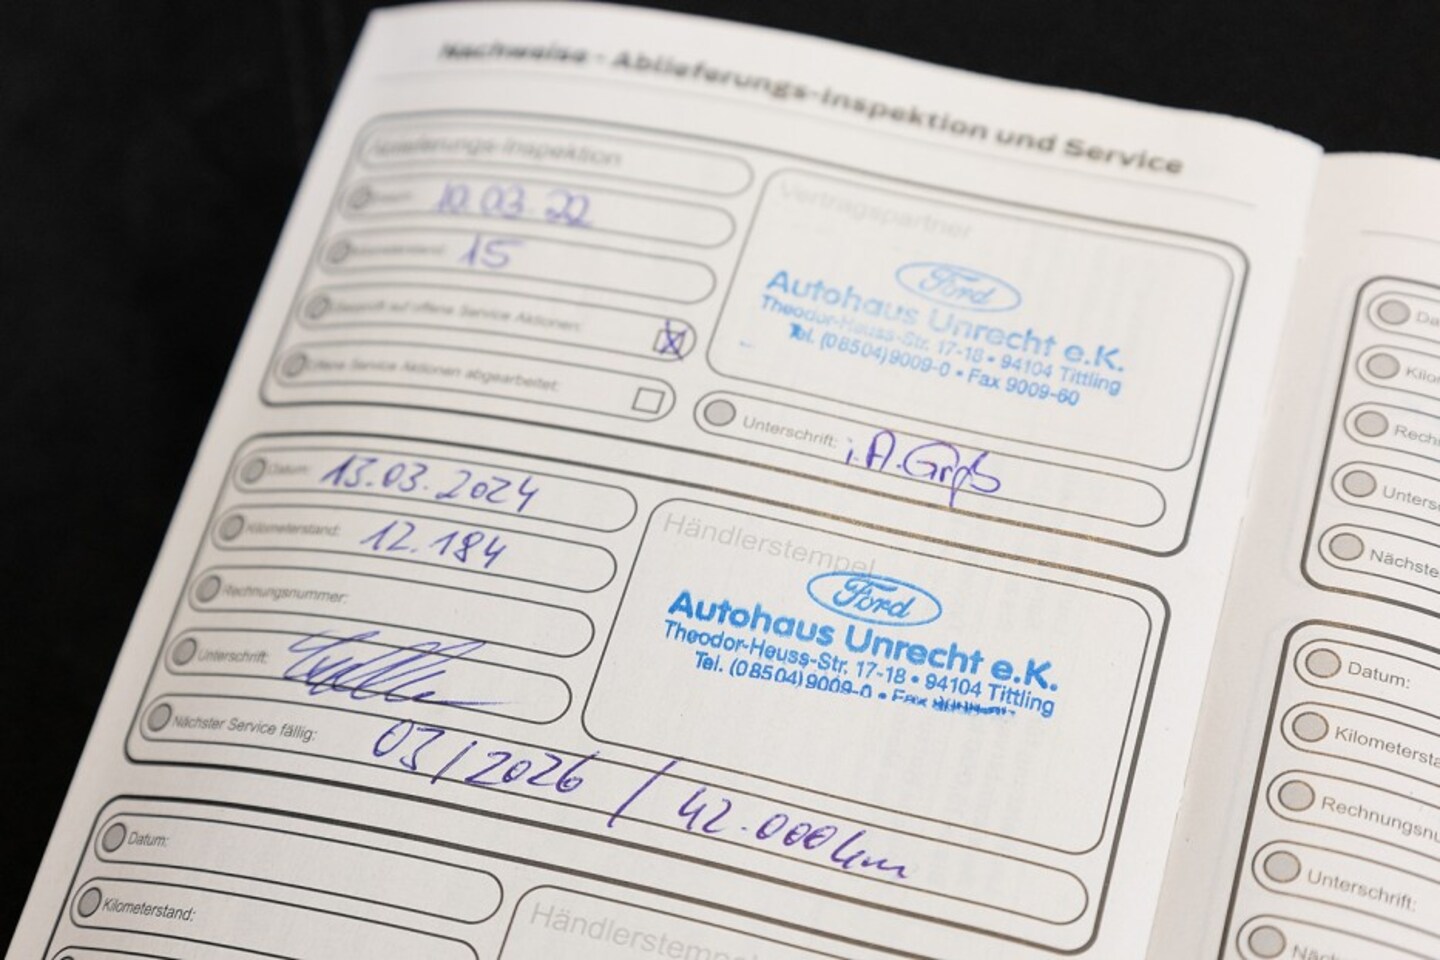 Nachweise - Ablieferungs-Inspektion und Service
Ablieferungs-Inspektion
Datum: 10.03.22
Kilometerstand: 15
Geprüft auf offene Service Aktionen:
Offene Service Aktionen abgearbeitet:
Vertragspartner
Ford
Autohaus Unrecht e.K.
Theodor-Heuss-Str. 17-18 • 94104 Tittling
Tel. (08504) 9009-0 • Fax 9009-60
Unterschrift: i.A.
Datum: 13.03.2024
Kilometerstand: 12.184
Rechnungsnummer:
Unterschrift:
Nächster Service fällig: 03/2026 / 42.000km
Händlerstempel
Ford
Autohaus Unrecht e.K.
Theodor-Heuss-Str. 17-18 • 94104 Tittling
Tel. (08504) 9009-0 • Fax
Datum:
Kilometerstand:
Händlerstempel
Da
Kilo
Rech
Unters
Nächste
Datum:
Kilometersta
Rechnungsnu
Unterschrift:
Näch